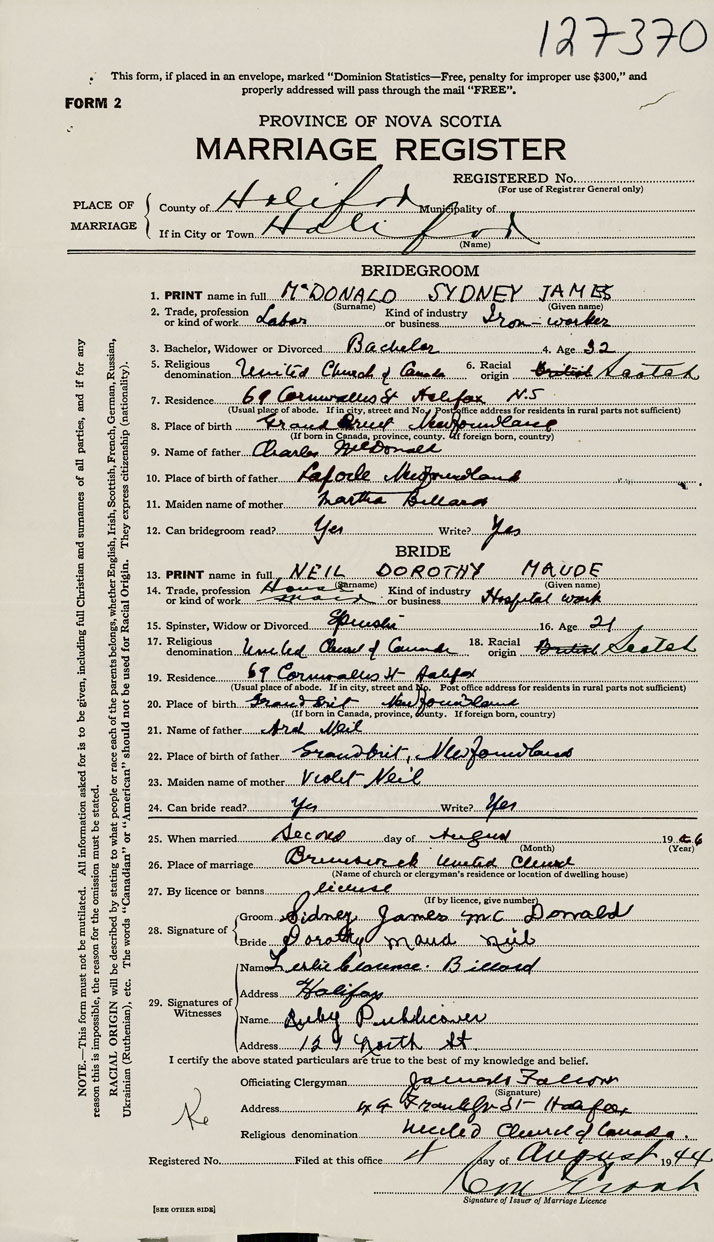 127370
This form, if placed in an envelope, marked "Dominion Statistics—Free, penalty for improper use $300," and
properly addressed will pass through the mail "FREE".
FORM 2
PROVINCE OF NOVA SCOTIA
MARRIAGE REGISTER
REGISTERED No.
(For use of Registrar General only)
PLACE OF MARRIAGE
County of Halifax Municipality of
If in City or Town Halifax
(Name)
BRIDEGROOM
1. PRINT name in full McDONALD SYDNEY JAMES
(Surname) (Given name)
2. Trade, profession or kind of work Labor Kind of industry or business Iron-worker
3. Bachelor, Widower or Divorced Bachelor 4. Age 32
5. Religious denomination United Church of Canada 6. Racial origin British Scotch
7. Residence 69 Cornwallis St Halifax N.S
(Usual place of abode. If in city, street and No. Post office address for residents in rural parts not sufficient)
8. Place of birth Grand Bruit Newfoundland
(If born in Canada, province, county. If foreign born, country)
9. Name of father Charles McDonald
10. Place of birth of father Lapoile Newfoundland
11. Maiden name of mother Martha Billard
12. Can bridegroom read? Yes Write? Yes
BRIDE
13. PRINT name in full NEIL DOROTHY MAUDE
(Surname) (Given name)
14. Trade, profession or kind of work House maid Kind of industry or business Hospital work
15. Spinster, Widow or Divorced Spinster 16. Age 21
17. Religious denomination United Church of Canada 18. Racial origin British Scotch
19. Residence 69 Cornwallis St Halifax
(Usual place of abode. If in city, street and No. Post office address for residents in rural parts not sufficient)
20. Place of birth Grand brit Newfoundland
(If born in Canada, province, county. If foreign born, country)
21. Name of father Neil
22. Place of birth of father Grandbrit, Newfoundland
23. Maiden name of mother Violet Neil
24. Can bride read? Yes Write? Yes
25. When married Second day of August 19
(Month) (Year)
26. Place of marriage Brunswick United Church
(Name of church or clergyman's residence or location of dwelling house)
27. By licence or banns license
(If by licence, give number)
28. Signature of
Groom Sidney James Mc Donald
Bride Dorothy Maud Neil
29. Signatures of Witnesses
Name Leslie Clarence Billard
Address Halifax
Name Ruby Publicover
Address 129 North St.
I certify the above stated particulars are true to the best of my knowledge and belief.
Officiating Clergyman
(Signature)
Address Franklyn St- Halifax
Religious denomination United Church of Canada.
Registered No. Filed at this office 4 day of August 1944
Signature of Issuer of Marriage Licence
[SEE OTHER SIDE]
NOTE.—This form must not be mutilated. All information asked for is to be given, including full Christian and surnames of all parties, and if for any
reason this is impossible, the reason for the omission must be stated.
RACIAL ORIGIN will be described by stating to what people or race each of the parents belongs, whether English, Irish, Scottish, French, German, Russian,
Ukrainian (Ruthenian), etc. The words "Canadian" or "American" should not be used for Racial Origin. They express citizenship (nationality).